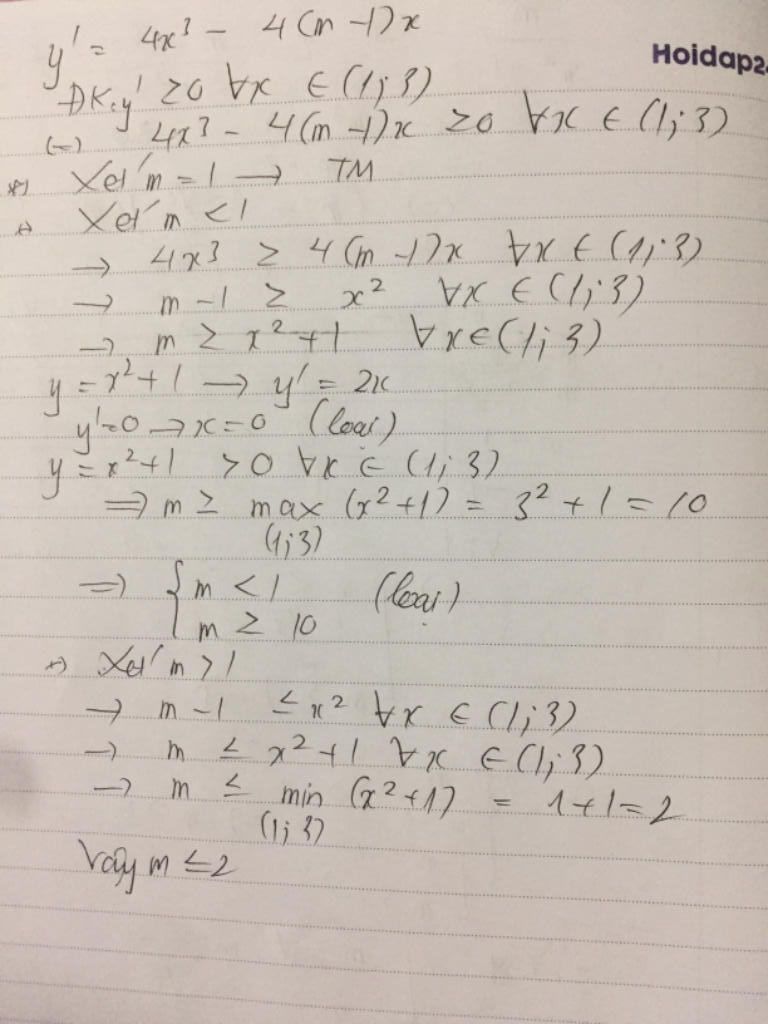 y' = 4x³ - 4(m-1)x
Hoidap24
ĐK: y' ≥0 ∀x ∈ (1;3)
(=) 4x³ - 4(m-1)x ≥0 ∀x ∈ (1;3)
*) Xét m = 1 → TM
+) Xét m < 1
→ 4x³ ≥ 4(m-1)x ∀x ∈ (1;3)
→ m-1 ≥ x² ∀x ∈ (1;3)
→ m ≥ x²+1 ∀x∈(1;3)
y = x²+1 → y' = 2x
y'=0 → x=0 (loại)
y = x²+1 >0 ∀x ∈ (1;3)
⇒ m ≥ max (x²+1) = 3²+1 = 10
(1;3)
⇒ { m < 1 (loại)
m ≥ 10
+) Xét m >1
→ m-1 ≤ x² ∀x ∈ (1;3)
→ m ≤ x²+1 ∀x ∈ (1;3)
→ m ≤ min (x²+1) = 1+1=2
(1;3)
Vậy m ≤2